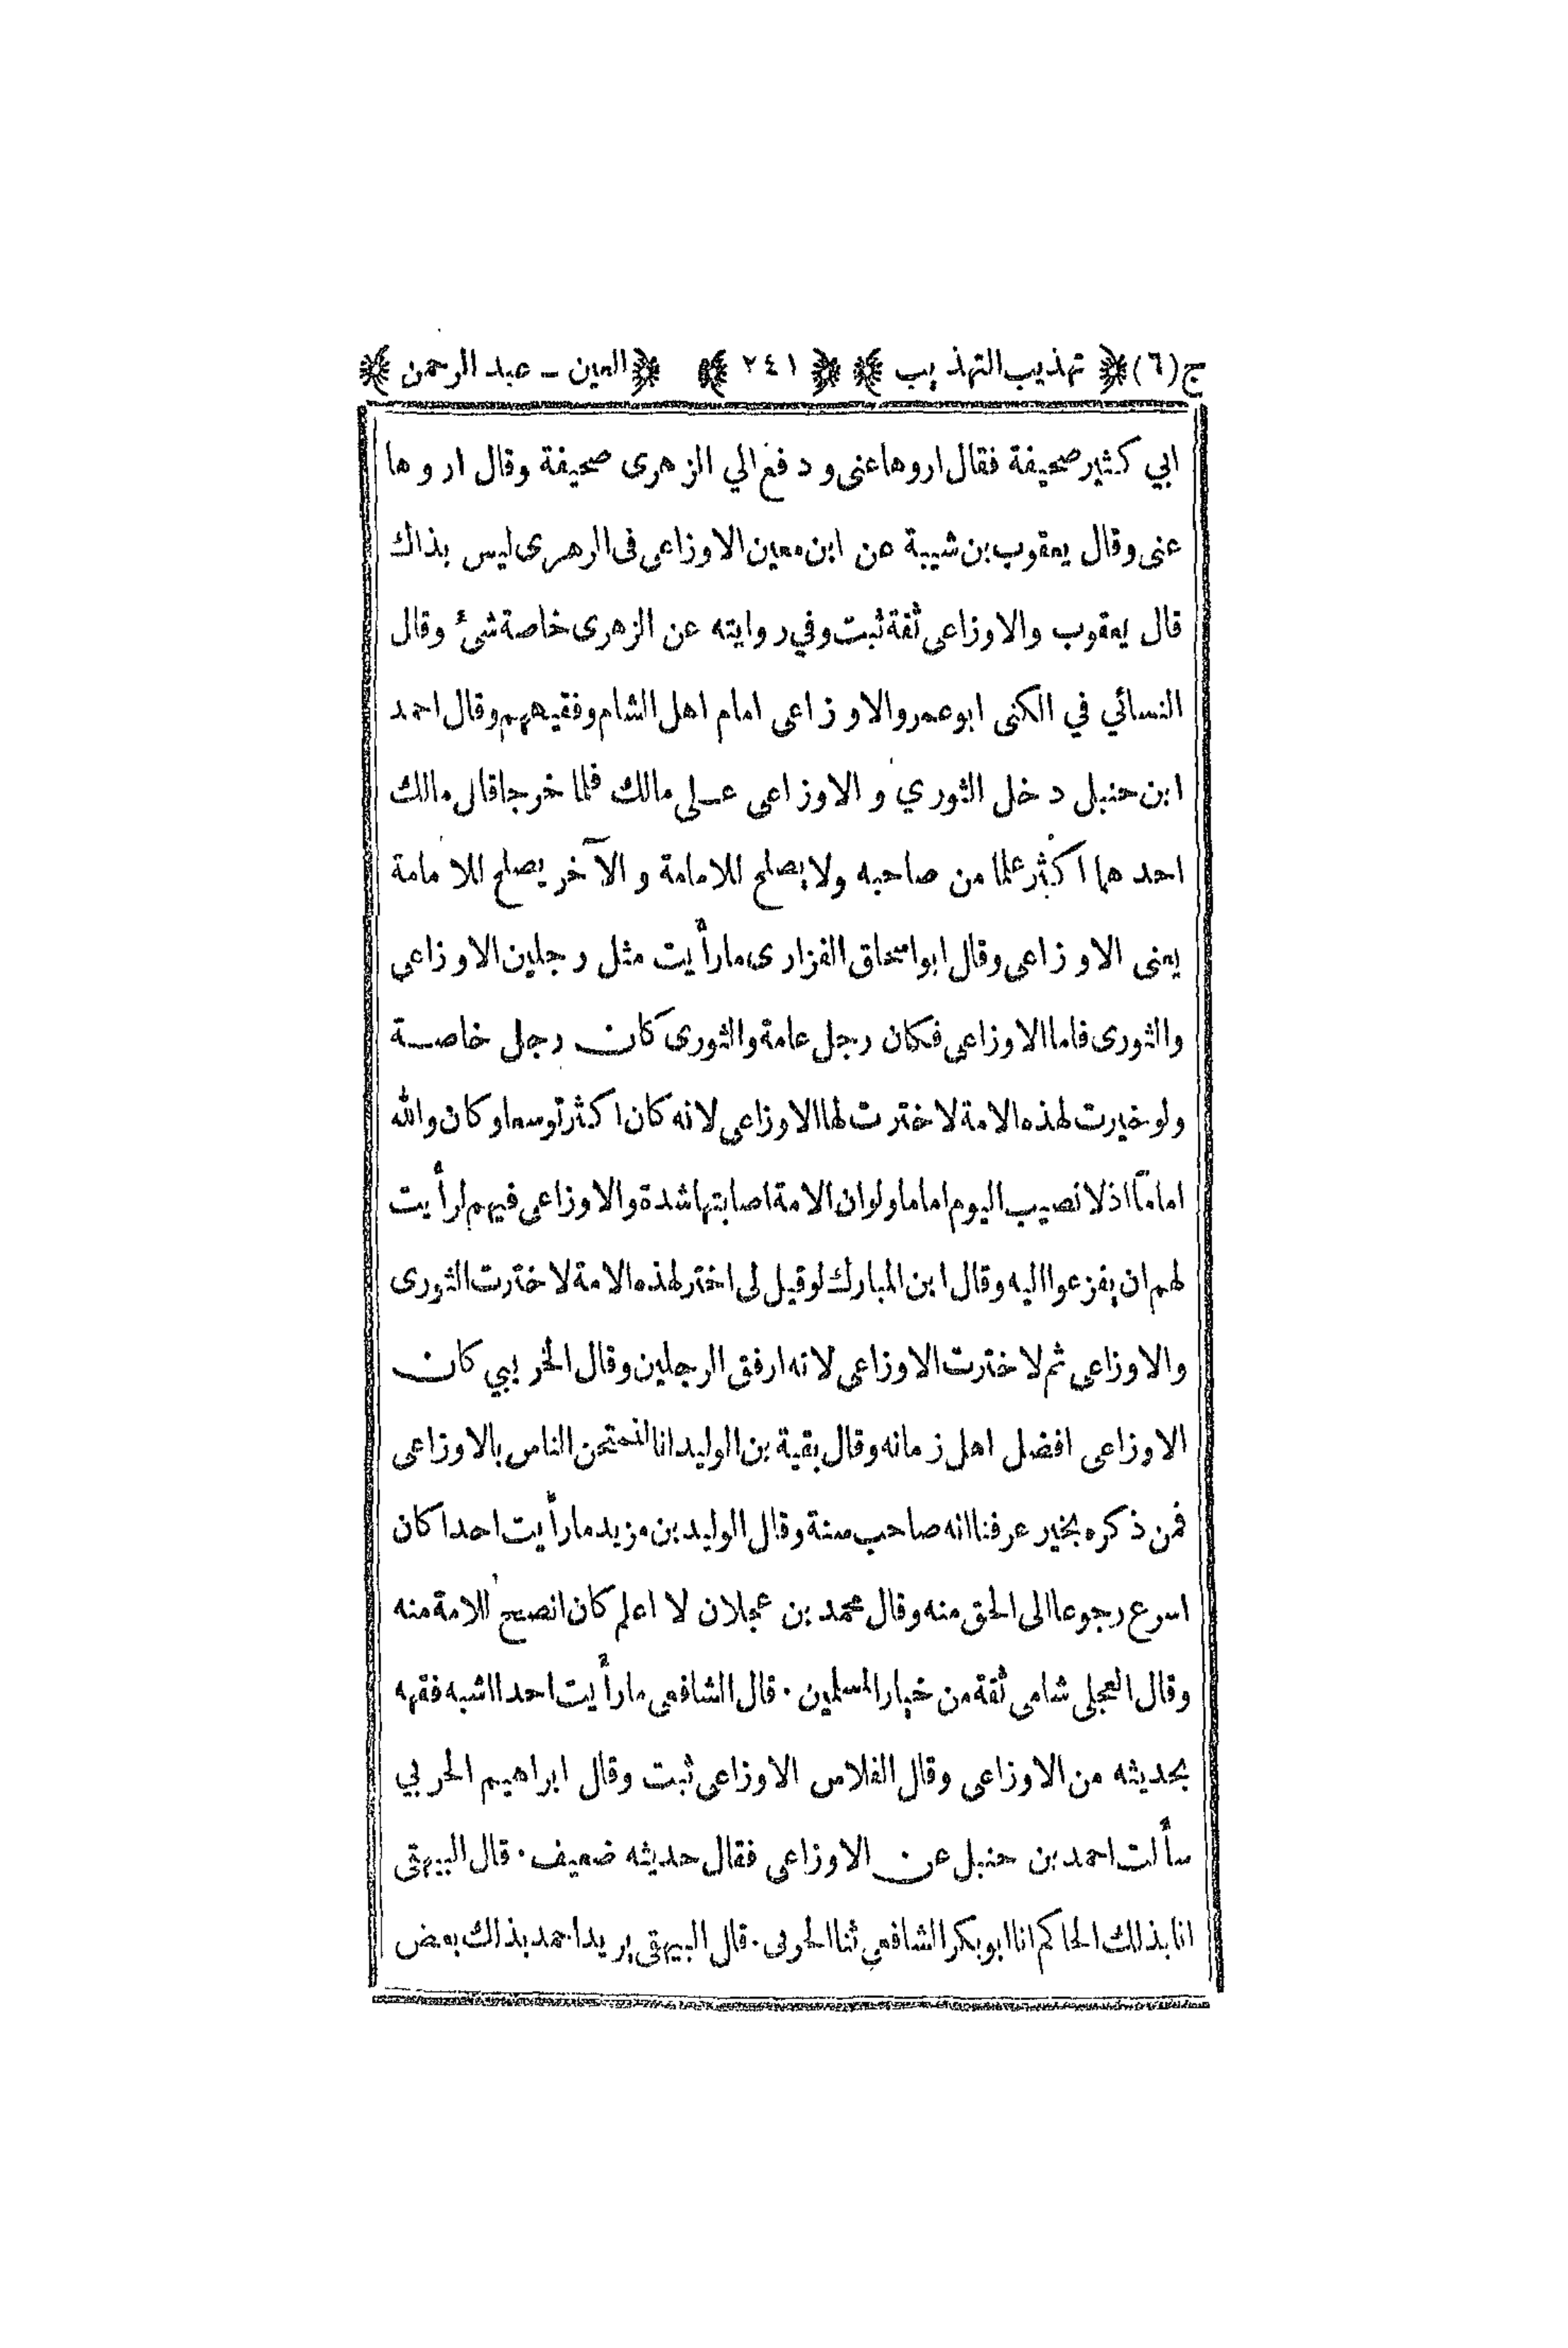 ج(٦) ﴿ تهذيب التهذيب ﴾ ﴿ ٢٤١ ﴾ ﴿ العين - عبد الرحمن ﴾
ابي كثير صحيفة فقال اروها عنى ودفع الي الزهرى صحيفة وقال اروها
عنى وقال يعقوب بن شيبة عن ابن معين الاوزاعى فى الزهرى ليس بذاك
قال يعقوب والاوزاعى ثقة ثبت وفي روايته عن الزهرى خاصة شئ وقال
النسائي في الكنى ابو عمرو الاوزاعى امام اهل الشام وفقيههم وقال احمد
ابن حنبل دخل الثوري والاوزاعى على مالك فلما خرجا قال مالك
احدهما اكثر علما من صاحبه ولا يصلح للامامة والآخر يصلح للامامة
يعنى الاوزاعى وقال ابو اسحاق الفزارى ما رأيت مثل رجلين الاوزاعى
والثورى فاما الاوزاعى فكان رجل عامة والثورى كان رجل خاصة
ولو خيرت لهذه الامة لاخترت لها الاوزاعى لانه كان اكثر توسعا وكان والله
اماماً اذ لا نصيب اليوم اماما ولو ان الامة اصابتها شدة والاوزاعى فيهم لرأيت
لهم ان يفزعوا اليه وقال ابن المبارك لو قيل لى اختر لهذه الامة لاخترت الثورى
والاوزاعى ثم لاخترت الاوزاعى لانه ارفق الرجلين وقال الخريبي كان
الاوزاعى افضل اهل زمانه وقال بقية بن الوليد انا لنمتحن الناس بالاوزاعى
فمن ذكره بخير عرفنا انه صاحب سنة وقال الوليد بن مزيد ما رأيت احدا كان
اسرع رجوعا الى الحق منه وقال محمد بن عجلان لا اعلم كان انصح للامة منه
وقال العجلى شامى ثقة من خيار المسلمين ٠ قال الشافعى ما رأيت احدا اشبه فقهه
بحديثه من الاوزاعى وقال الفلاس الاوزاعى ثبت وقال ابراهيم الحربي
سألت احمد بن حنبل عن الاوزاعى فقال حديثه ضعيف ٠ قال البيهقى
انا بذلك الحاكم انا ابو بكر الشافعي ثنا الحربى ٠ قال البيهقى يريد احمد بذلك بعض